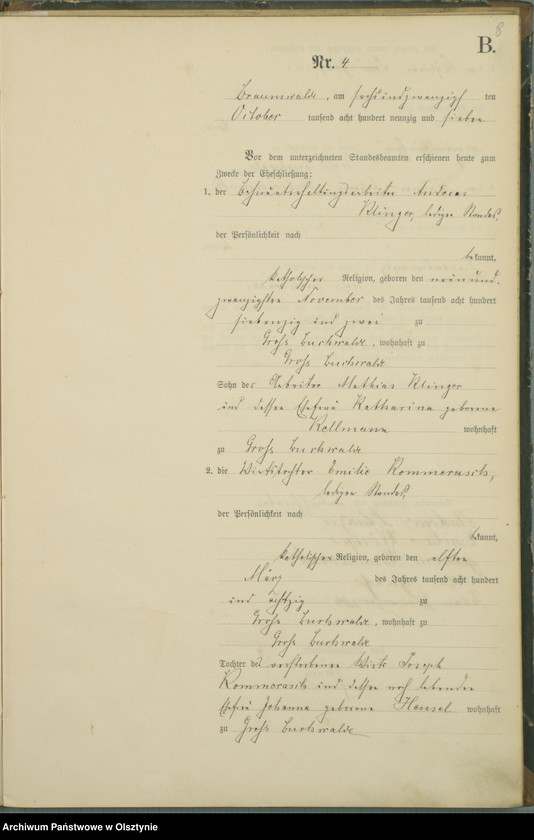 8
B.
Nr. 4
Braunswalde, am sechsundzwanzigsten
October tausend acht hundert neunzig und sieben
Vor dem unterzeichneten Standesbeamten erschienen heute zum
Zwecke der Eheschließung:
1. der Andreas
Klinger, ledigen Standes,
der Persönlichkeit nach
bekannt,
katholischer Religion, geboren den neunund-
zwanzigsten November des Jahres tausend acht hundert
siebenzig und zwei zu
Groß Buchwalde, wohnhaft zu
Groß Buchwalde
Sohn des Mathias Klinger
und dessen Ehefrau Katharina geborene
Kellmann wohnhaft
zu Groß Buchwalde
2. die Wirtstochter Emilie Kommorasch,
ledigen Standes,
der Persönlichkeit nach
bekannt,
katholischer Religion, geboren den elften
März des Jahres tausend acht hundert
und achtzig zu
Groß Buchwalde, wohnhaft zu
Groß Buchwalde
Tochter des verstorbenen Wirts Joseph
Kommorasch und dessen noch lebenden
Ehefrau Johanna geborene Hensel wohnhaft
zu Groß Buchwalde
Archiwum Państwowe w Olsztynie